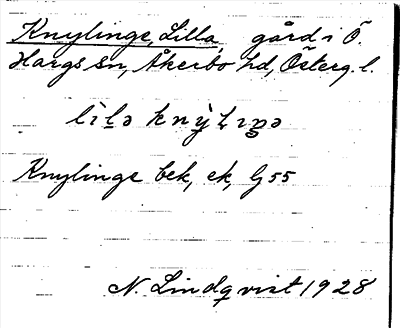 Knylinge, Lilla, gård i Ö.
Hargs sn, Åkerbo hd, Österg. l.
lìlə knỳlıŋə
Knylinge bek, ek, Lj 55
N. Lindqvist 1928